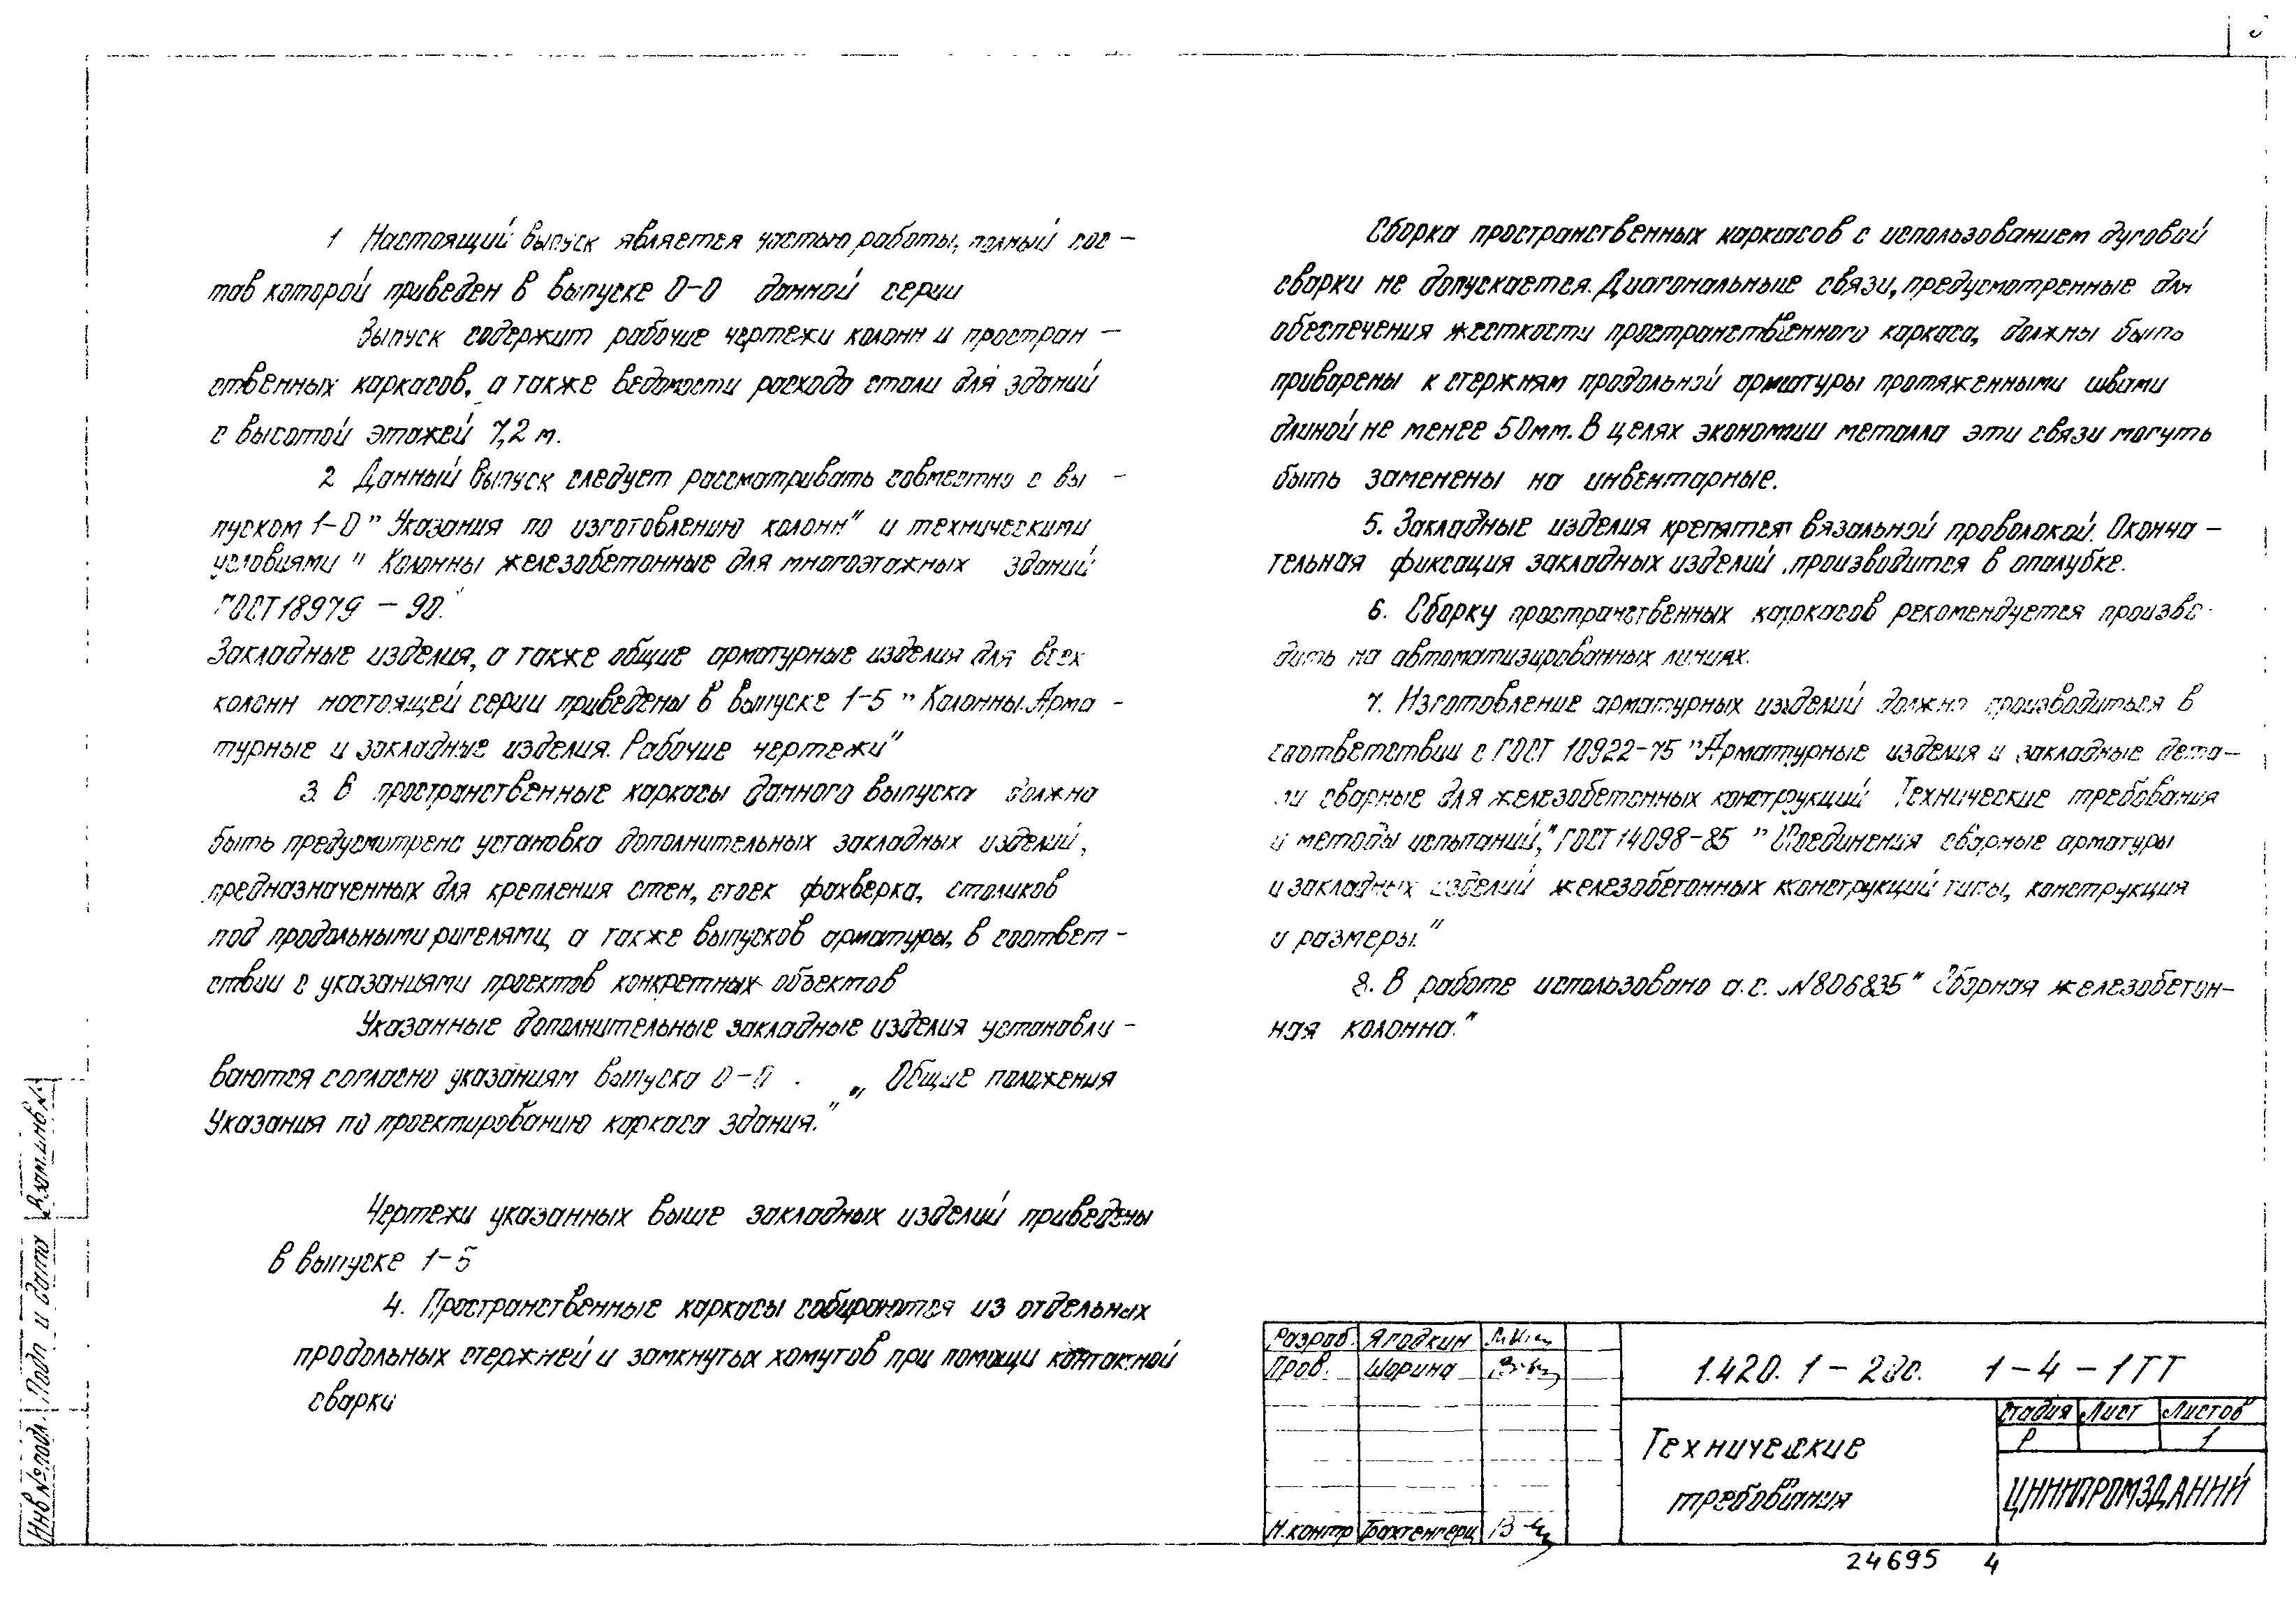 1 Настоящий выпуск является частью работы, полный сос-
тав которой приведен в выпуске 0-0 данной серии
Выпуск содержит рабочие чертежи колонн и простран-
ственных каркасов, а также ведомости расхода стали для зданий
с высотой этажей 7,2 м.
2 Данный выпуск следует рассматривать совместно с вы-
пуском 1-0 "Указания по изготовлению колонн" и техническими
условиями "Колонны железобетонные для многоэтажных зданий
ГОСТ 18979 – 90."
Закладные изделия, а также общие арматурные изделия для всех
колонн настоящей серии приведены в выпуске 1-5 "Колонны. Арма-
турные и закладные изделия. Рабочие чертежи"
3 В пространственные каркасы данного выпуска должна
быть предусмотрена установка дополнительных закладных изделий,
предназначенных для крепления стен, стоек фахверка, столиков
под продольными ригелями, а также выпусков арматуры, в соответ-
ствии с указаниями проектов конкретных объектов
Указанные дополнительные закладные изделия устанавли-
ваются согласно указаниям выпуска 0-0. „Общие положения
Указания по проектированию каркаса здания."
Чертежи указанных выше закладных изделий приведены
в выпуске 1-5
4. Пространственные каркасы собираются из отдельных
продольных стержней и замкнутых хомутов при помощи контактной
сварки
Сборка пространственных каркасов с использованием дуговой
сварки не допускается. Диагональные связи, предусмотренные для
обеспечения жесткости пространственного каркаса, должны быть
приварены к стержням продольной арматуры протяженными швами
длиной не менее 50мм. В целях экономии металла эти связи могуть
быть заменены на инвентарные.
5. Закладные изделия крепятся вязальной проволокой. Оконча-
тельная фиксация закладных изделий производится в опалубке.
6. Сборку пространственных каркасов рекомендуется произво-
дить на автоматизированных линиях.
7. Изготовление арматурных изделий должно производиться в
соответствии с ГОСТ 10922-75 "Арматурные изделия и закладные дета-
ли сварные для железобетонных конструкций Технические требования
и методы испытаний," ГОСТ 14098-85 "Соединения сварные арматуры
и закладных изделий железобетонных конструкций типы, конструкция
и размеры."
8. В работе использовано а.с. №806835 "Сборная железобетон-
ная колонна."
Взам.инв.№
Подп и дата
Инв.№подл.
Разраб. Ягодкин
Пров. Шарина
Н.контр Трахтенгерц
1-4-1ТТ
Технические
требования
Стадия Лист Листов
Р 1
ЦНИИПРОМЗДАНИЙ
24695 4